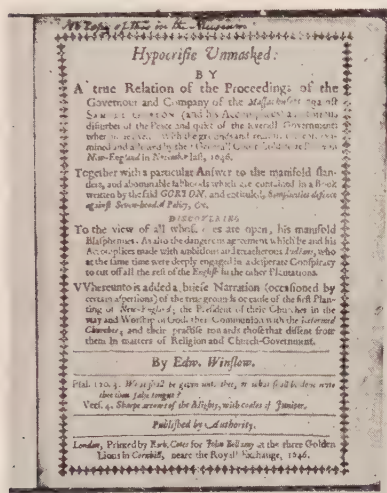 No Copy of this in the Museum
Hypocrisie Unmasked:
BY
A true Relation of the Proceedings of the
Governour and Company of the Massachusets against
SAMUEL GORTON (and his Accomplices) a notorious
disturber of the Peace and quiet of the severall Governments
wherein he lived: With the grounds and reasons
mined and allowed by the Generall Court
New-England in November last, 1646.
Together with a particular Answer to the manifold slan-
ders, and abominable falshoods which are contained in a Book
written by the said GORTON, and entituled, Simplicities defence
against Seven-headed Policy, &c.
DISCOVERING
To the view of all whose eyes are open, his manifold
Blasphemies; As also the dangerous agreement which he and his
Accomplices made with ambitious and treacherous Indians, who
at the same time were deeply engaged in a desperate Conspiracy
to cut off all the rest of the English in the other Plantations.
VVhereunto is added a briefe Narration (occasioned by
certain aspersions) of the true grounds or cause of the first Plan-
ting of New-England; the President of their Churches in the
way and Worship of God; their Communion with the Reformed
Churches; and their practise towards those that dissent from
them in matters of Religion and Church-Government.
By Edw. Winslow.
Psal. 120. 3. What shall be given unto thee, or what shall be done unto
thee thou false tongue?
Vers. 4. Sharpe arrows of the Mighty, with coales of Juniper.
Published by Authority.
London, Printed by Rich. Cotes for John Bellamy at the three Golden
Lions in Cornhill, neare the Royall Exchange, 1646.